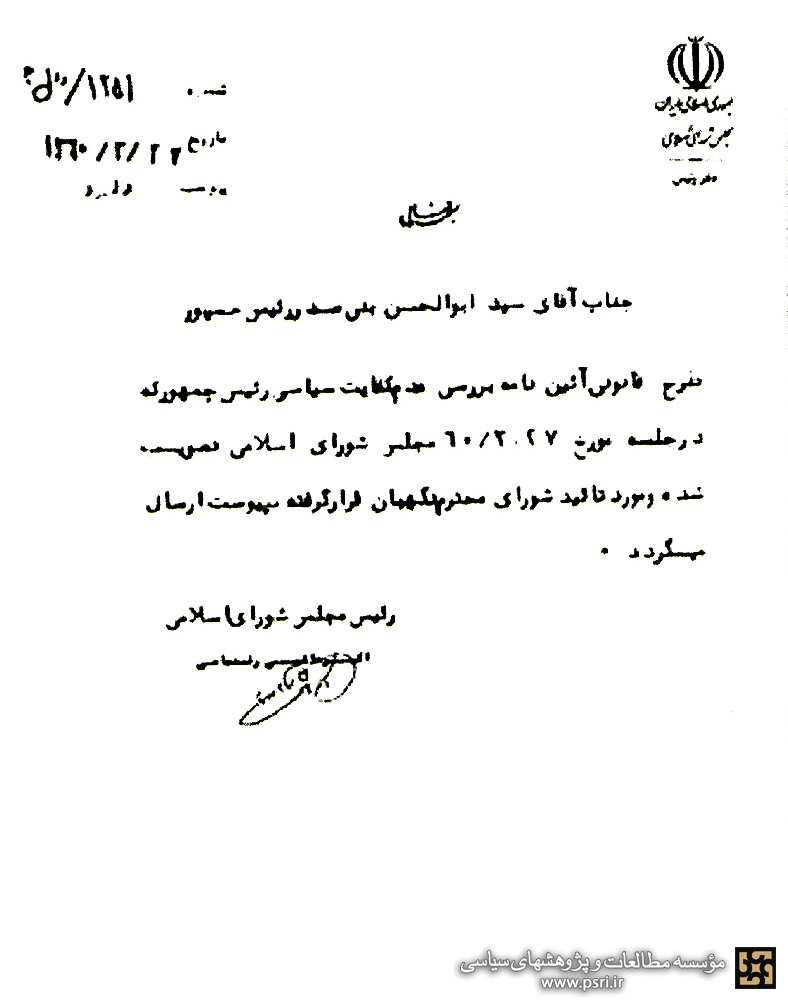 جمهوری اسلامی ایران
مجلس شورای اسلامی
دفتر رئیس
شماره ۱۲۵۱/
تاریخ ۱۳۶۰/۳/۲۷
پیوست دارد
جناب آقای سید ابوالحسن بنی صدر رئیس جمهور
طرح قانونی آئین نامه بررسی عدم کفایت سیاسی رئیس جمهور که
در جلسه مورخ ۶۰/۳٫۲۷ مجلس شورای اسلامی تصویب
شده و مورد تائید شورای محترم نگهبان قرار گرفته بپیوست ارسال
میگردد ۰
رئیس مجلس شورای اسلامی
اکبر هاشمی رفسنجانی
مؤسسه مطالعات و پژوهشهای سیاسی
www.psri.ir